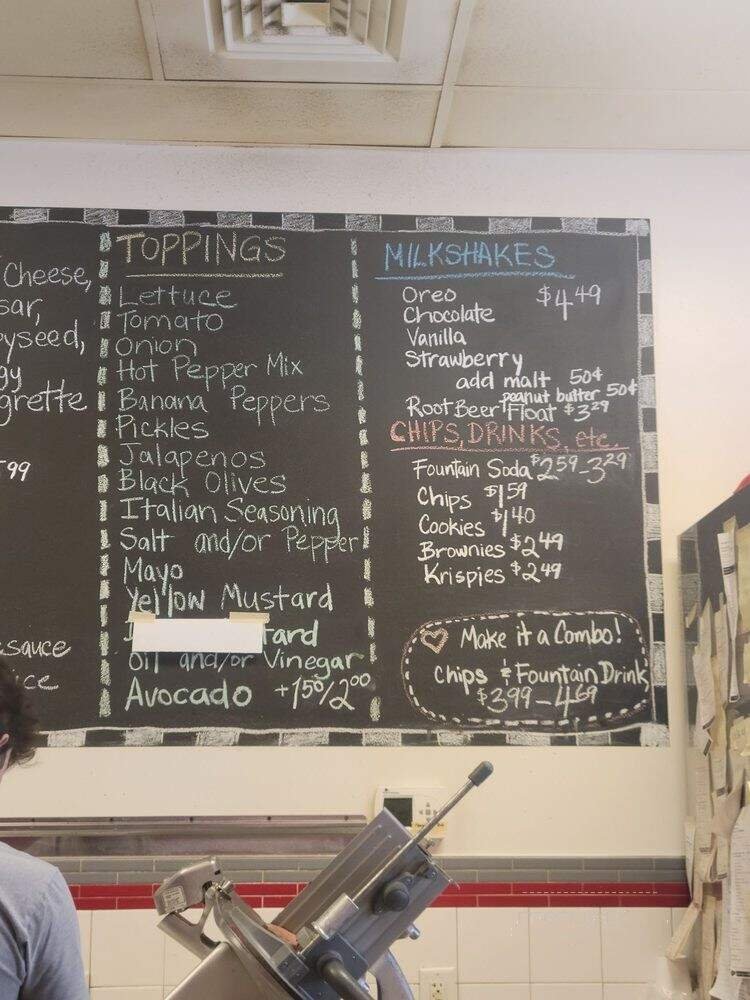 Cheese,
sar,
yseed,
gy
grette
99
sauce
ice
TOPPINGS
Lettuce
Tomato
Onion
Hot Pepper Mix
Banana Peppers
Pickles
Jalapenos
Black Olives
Italian Seasoning
Salt and/or Pepper
Mayo
Yellow Mustard
tard
Oil and/or Vinegar
Avocado +1.50/2.00
MILKSHAKES
Oreo $4.49
Chocolate
Vanilla
Strawberry
add malt 50¢
peanut butter 50¢
Root Beer Float $3.29
CHIPS, DRINKS, etc.
Fountain Soda $2.59-3.29
Chips $1.59
Cookies $1.40
Brownies $2.49
Krispies $2.49
Make it a Combo!
Chips & Fountain Drink
$3.99-4.69